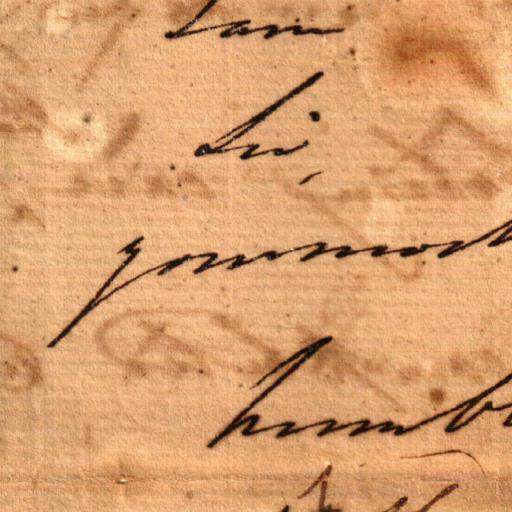 I am
Sir,
your most
humb